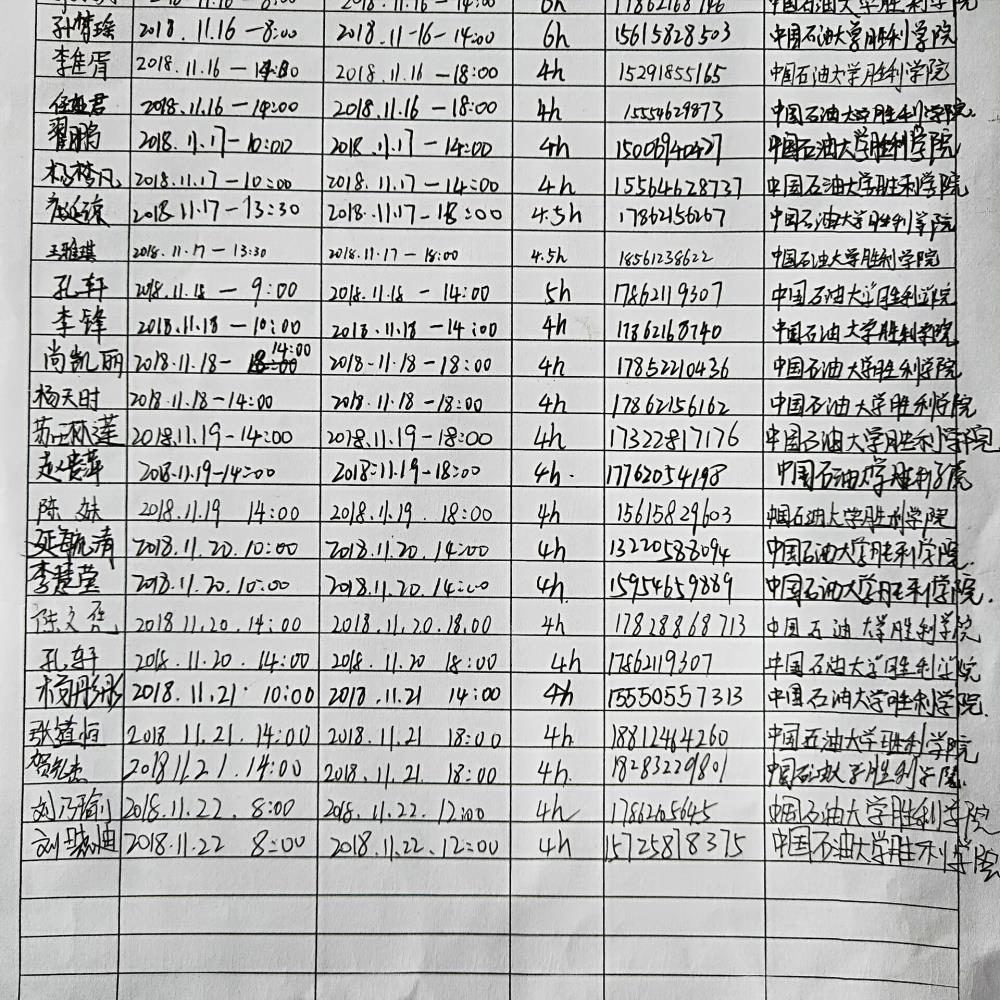 孙梦瑶 2018.11.16-8:00 2018.11-16-14:00 6h 15615828503 中国石油大学胜利学院
李 2018.11.16-14:30 2018.11.16-18:00 4h 15291855165 中国石油大学胜利学院
君 2018.11.16-14:00 2018.11.16-18:00 4h 15554629873 中国石油大学胜利学院.
翟鹏 2018.11.17-10:00 2018.11.17-14:00 4h 15006940427 中国石油大学胜利学院
杨梦凡 2018.11.17-10:00 2018.11.17-14:00 4h 15564628737 中国石油大学胜利学院
2018.11.17-13:30 2018.11.17-18:00 4.5h 17862156267 中国石油大学胜利学院
王雅琪 2018.11.17-13:30 2018.11.17-18:00 4.5h 18561238622 中国石油大学胜利学院
孔轩 2018.11.18-9:00 2018.11.18-14:00 5h 17862119307 中国石油大学胜利学院
李锋 2018.11.18-10:00 2018.11.18-14:00 4h 17862168740 中国石油大学胜利学院
尚凯丽 2018.11.18-14:00 2018.11.18-18:00 4h 17852210436 中国石油大学胜利学院
杨天时 2018.11.18-14:00 2018.11.18-18:00 4h 17862156162 中国石油大学胜利学院
苏 2018.11.19-14:00 2018.11.19-18:00 4h 17322817176 中国石油大学胜利学院
赵 2018.11.19-14:00 2018.11.19-18:00 4h. 17762054198 中国石油大学胜利学院
陈妹 2018.11.19 14:00 2018.11.19. 18:00 4h 15615829603 中国石油大学胜利学院
延毓清 2018.11.20.10:00 2018.11.20.14:00 4h 13220588094 中国石油大学胜利学院.
李慧莹 2018.11.20.10:00 2018.11.20.14:00 4h. 15954659889 中国石油大学胜利学院.
陈文 2018.11.20.14:00 2018.11.20.18:00 4h 17828868713 中国石油大学胜利学院
孔轩 2018.11.20.14:00 2018.11.20 18:00 4h 17862119307 中国石油大学胜利学院
杨彤彤 2018.11.21 10:00 2018.11.21 14:00 4h 15550557313 中国石油大学胜利学院.
张道恒 2018.11.21.14:00 2018.11.21 18:00 4h 18812484260 中国石油大学胜利学院
贺 2018.11.21.14:00 2018.11.21.18:00 4h. 18283229801 中国石油大学胜利学院.
刘乃瑜 2018.11.22.8:00 2018.11.22.12:00 4h 1786265645 中国石油大学胜利学院
刘晓迪 2018.11.22 8:00 2018.11.22.12:00 4h 15725878375 中国石油大学胜利学院